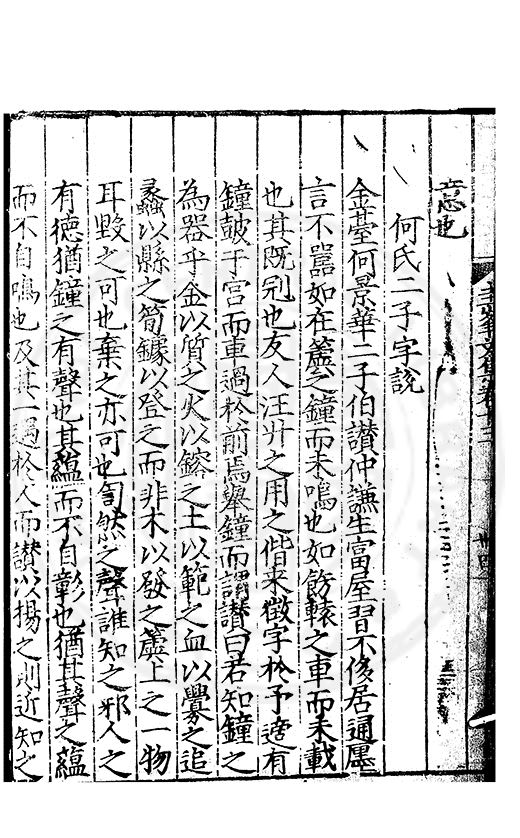 意也
何氏二子字說
金臺何景華二子伯讃仲謙生富屋習不侈居通㕓
言不嚚如在簴之鐘而未鳴也如飭轅之車而未載
也其既冠也友人汪廾之用之偕来徵字於予適有
鐘皷于宫而車過於前焉舉鐘而謂讃曰君知鐘之
為器乎金以質之火以鎔之土以範之血以釁之追
蠡以縣之筍鐻以登之而非木以發之簴上之一物
耳毀之可也棄之亦可也訇然之聲誰知之邪人之
有徳猶鐘之有聲也其蘊而不自彰也猶其聲之蘊
而不自鳴也及其一過於人而讃以揚之則近知之